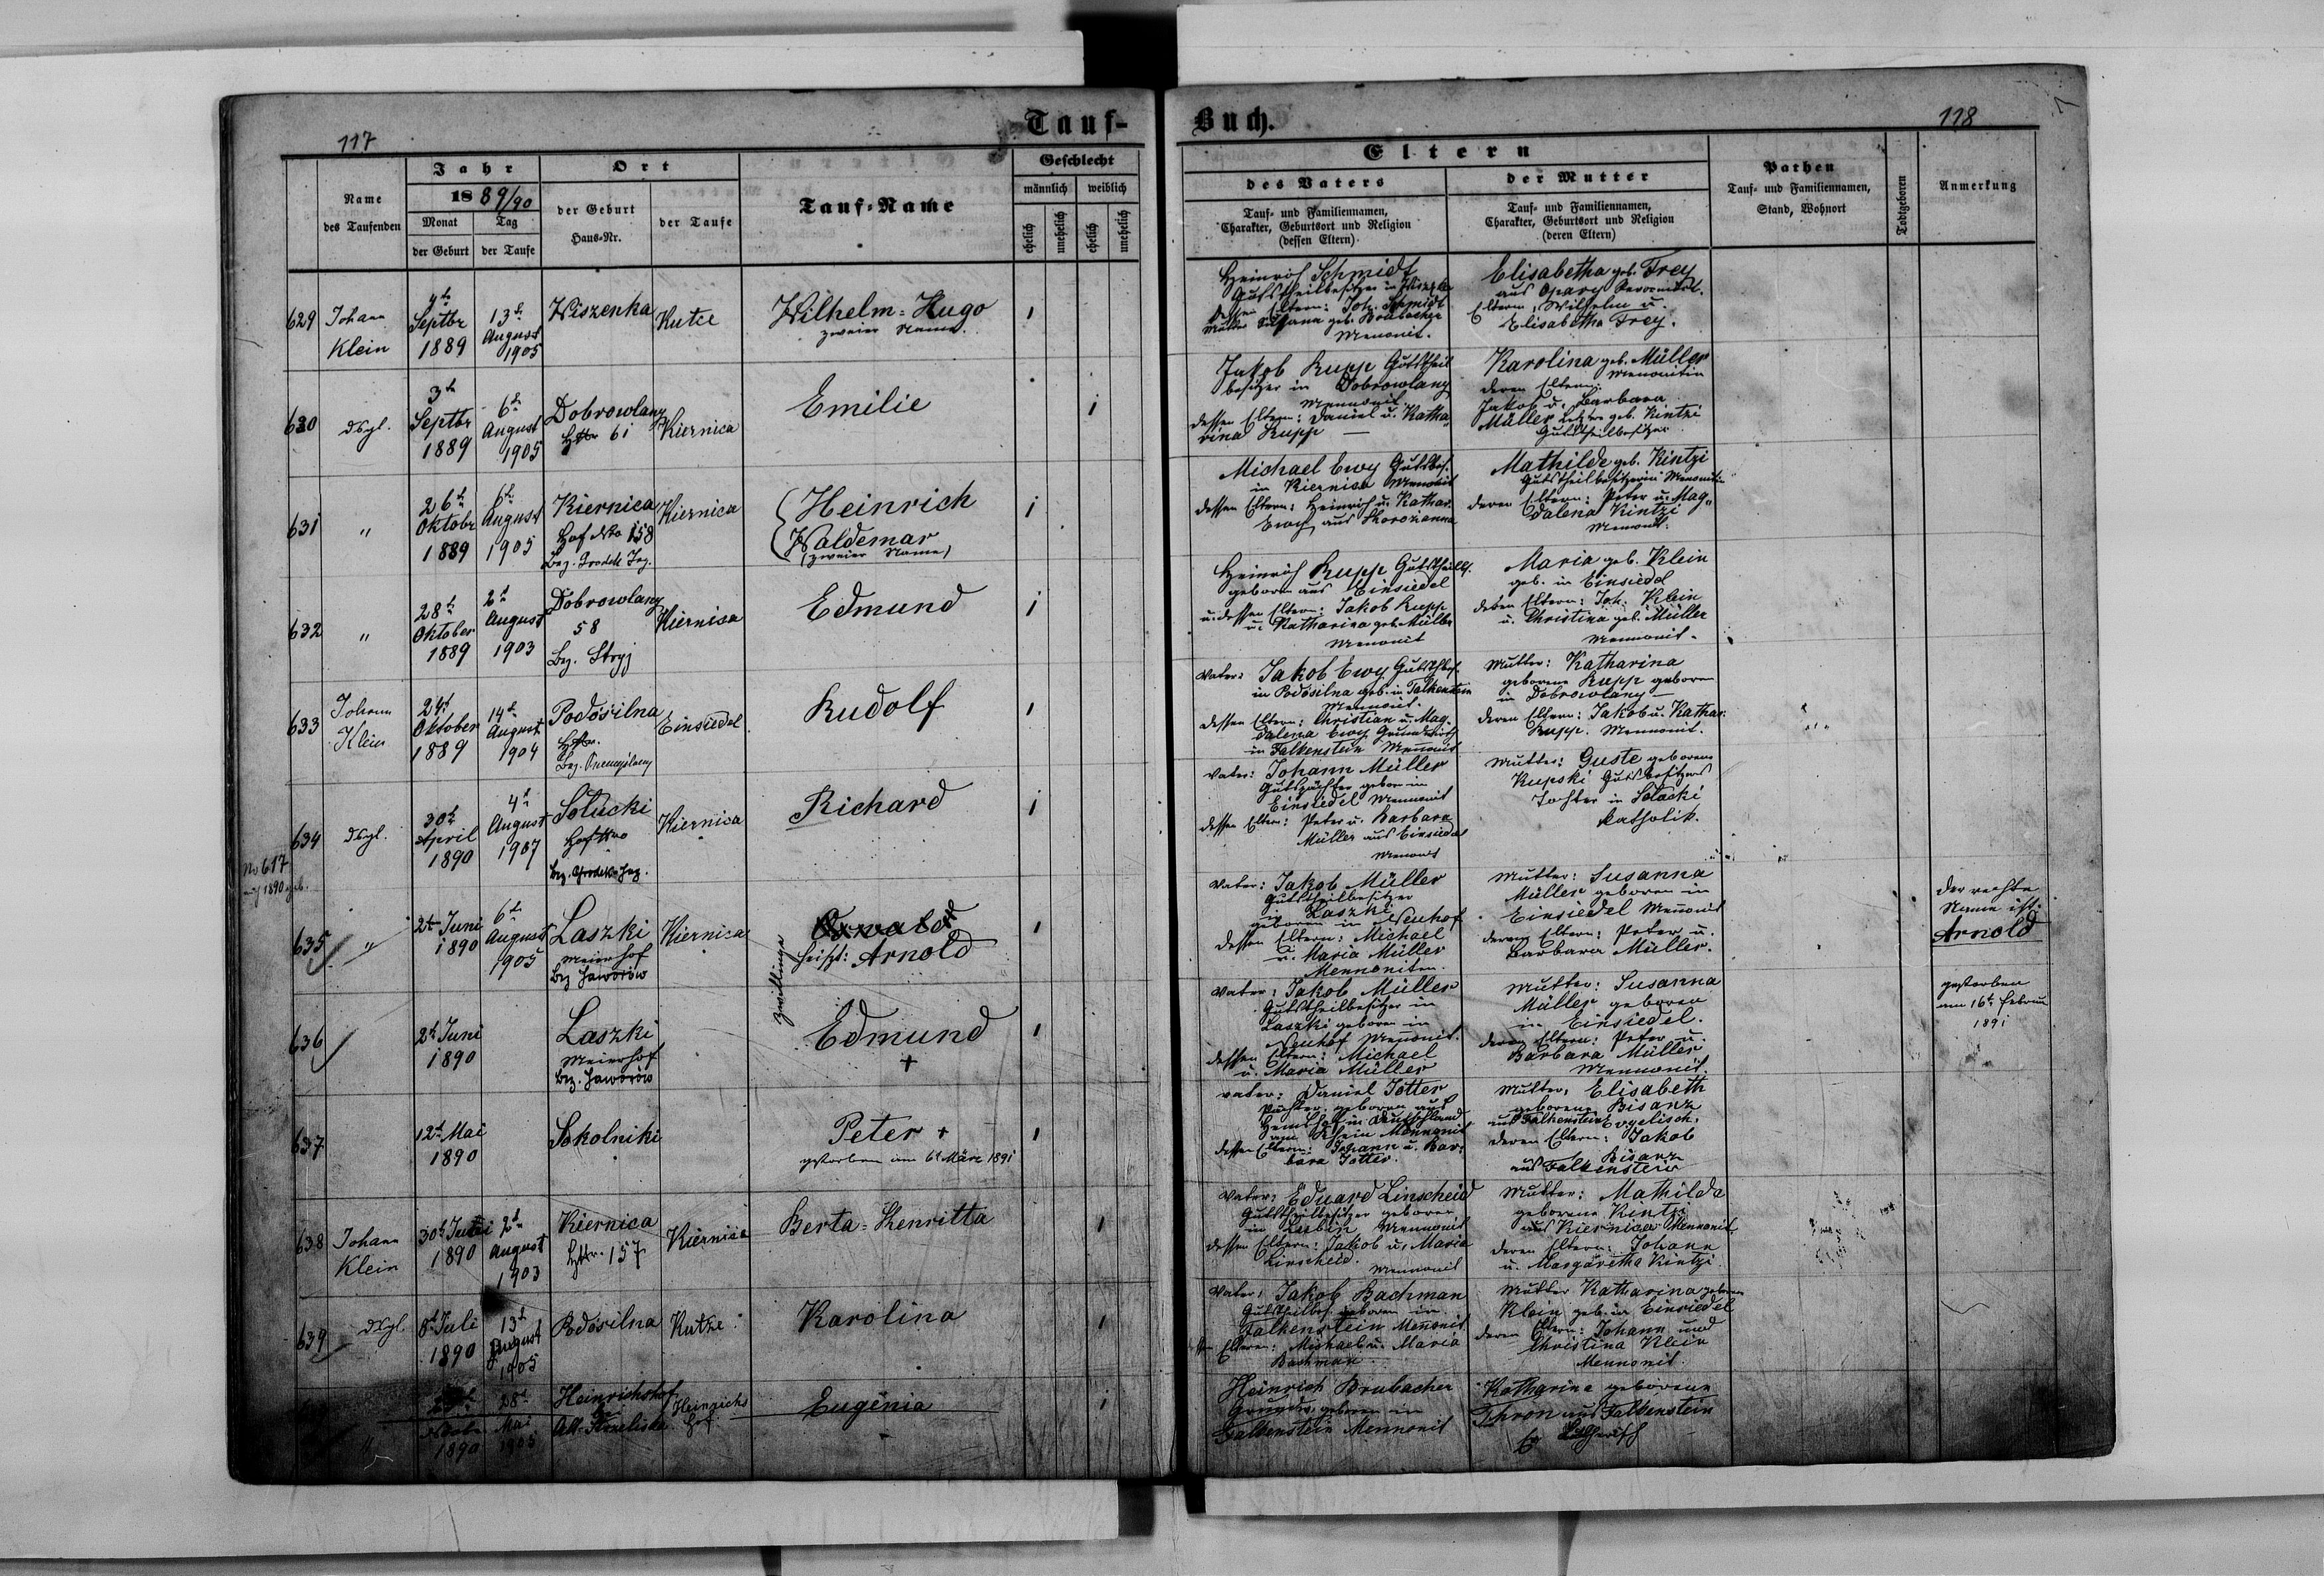 117
Tauf-
Buch.
118
Name
des Taufenden
Jahr
1889/90
Monat
Tag
der Geburt
der Taufe
Ort
der Geburt
Haus-Nr.
der Taufe
Tauf-Name
Geschlecht
männlich
weiblich
ehelich
unehelich
ehelich
unehelich
Eltern
des Vaters
Tauf- und Familiennamen,
Charakter, Geburtsort und Religion
(dessen Eltern)
der Mutter
Tauf- und Familiennamen,
Charakter, Geburtsort und Religion
(deren Eltern)
Pathen
Tauf- und Familiennamen,
Stand, Wohnort
Todtgeboren
Anmerkung
629
Johann
Klein
Septbr
1889
13t
August
1905
Wiszenka
Kutce
Wilhelm-Hugo
zweier Name
1
Heinrich Schmidt
Gutstheilbesitzer in
dessen Eltern: Joh. Schmidt
Mutter Susanna geb.
Menonit.
Elisabetha geb. Frey
aus Opary
Eltern: Wilhelm u.
Elisabetha Frey.
630
dsgl.
3t
Septbr
1889
6t
August
1905
Dobrowlany
61
Kiernica
Emilie
1
Jakob Rupp Gutstheil
besitzer in Dobrowlany
Mennonit.
dessen Eltern: Daniel u. Katha
rina Rupp
Karolina geb. Müller
Menonitin
deren Eltern:
Jakob u. Barbara
Müller geb. Kintzi
Gutstheilbesitzer
631
"
26t
Oktobr
1889
6t
August
1905
Kiernica
Hof No 158
Bez. Grodek Jag.
Kiernica
Heinrich
Waldemar
(zweier Name)
1
Michael Ewy Gutsbes.
in Kiernica Menonit
dessen Eltern: Heinrich u. Kathar.
Ewy aus
Mathilde geb. Kintzi
Gutstheilbesitzerin Menonitin
deren Eltern: Peter u. Mag-
dalena Kintzi
Menonit.
632
"
28t
Oktober
1889
2t
August
1903
Dobrowlany
58
Bez. Stryj
Kiernica
Edmund
1
Heinrich Rupp Gutstheilb.
geboren aus Einsiedel
u. dessen Eltern: Jakob Rupp
u. Katharina geb. Müller
Menonit
Maria geb. Klein
geb. in Einsiedel
deren Eltern: Joh. Klein
u. Christina geb. Müller
Mennonit.
633
Johann
Klein
24t
Oktober
1889
14t
August
1904
Podósilna
Bez. Przemyslany
Einsiedel
Rudolf
1
Vater: Jakob Ewy
in Podósilna geb. in Falkenstein
Mennonit.
dessen Eltern: Christian u. Mag-
dalena Ewy Grundwirth
in Falkenstein Menonit
Mutter: Katharina
geborene Rupp geboren
in Dobrowlany
deren Eltern: Jakob u. Kathar.
Rupp. Mennonit.
634
dsgl.
30t
April
1890
4t
August
1907
Solucki
Bez. Grodek Jag.
Kiernica
Richard
1
Vater: Johann Müller
Gutspächter geboren in
Einsiedel Mennonit
dessen Eltern: Peter u. Barbara
Müller aus Einsiedel
Menonit
Mutter: Guste geborene
Kupski Gutsbesitzers
Tochter in Solacki
Katholik.
No 617
auch 1890 geb.
635
"
2t Juni
1890
6t
August
1905
Laszki
Meierhof
Bez Jaworów
Kiernica
Zwillinge
Oswald
heißt: Arnold
1
Vater: Jakob Müller
Gutstheilbesitzer
in Laszki
geboren in Neuhof
dessen Eltern: Michael
u. Maria Müller
Mennoniten.
Mutter: Susanna
Müller geboren in
Einsiedel Mennonit
deren Eltern: Peter u.
Barbara Müller.
der rechte
Name ist:
Arnold
636
2t Juni
1890
Laszki
Meierhof
Bez. Jaworów
Edmund
+
1
Vater: Jakob Müller
Gutstheilbesitzer in
Laszki geboren in
Neuhof Menonit.
dessen Eltern: Michael
u. Maria Müller
Mutter: Susanna
Müller geboren
in Einsiedel.
deren Eltern: Peter u.
Barbara Müller
Mennonit.
gestorben
am 16t Februar
1891
637
12t Mai
1890
Sokolniki
Peter +
gestorben am 6t März 1891
1
Vater: Daniel Jotter
Pächter, geboren aus
in Deutschland
am Rhein Mennonit
dessen Eltern: Johann u. Bar-
bara Jotter.
Mutter: Elisabeth
geborene Bisanz
aus Falkenstein Evgelisch.
deren Eltern: Jakob
Bisanz
aus Falkenstein
638
Johann
Klein
30t
1890
2t
August
1903
Kiernica
157
Kiernica
Berta-Henritta
1
Vater: Eduard Linscheid
Gutstheilbesitzer geboren
in Mennonit
dessen Eltern: Jakob u. Maria
Linscheid.
Mennonit
Mutter: Mathilda
geborene Kintzi
aus Kiernica Mennonit.
deren Eltern: Johann
u. Margaretha Kintzi.
639
dsgl.
8t Juli
1890
13t
August
1905
Podósilna
Kutze
Karolina
1
Vater: Jakob Bachman
Gutstheilbes. geboren in
Falkenstein Menonit
Eltern: Michael u. Maria
Bachman.
Mutter Katharina geboren
Klein geb. in Einsiedel
deren Eltern: Johann und
Christina Klein
Mennonit.
"
1890
28t
Mai
1905
Heinrichshof
Heinrichs
hof
Eugénia
1
Heinrich Brubacher
Grundw. geboren in
Falkenstein Mennonit
Katharina geborene
Thron aus Falkenstein